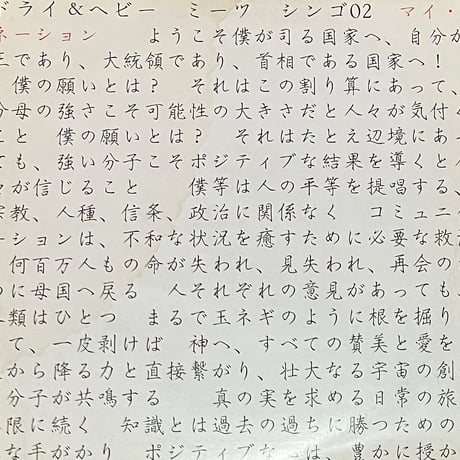 ドライ＆ヘビー ミーツ シンゴ02 マイ・
ネーション ようこそ僕が司る国家へ、自分が
王であり、大統領であり、首相である国家へ!
僕の願いとは? それはこの割り算にあって、
分母の強さこそ可能性の大きさだと人々が気付く
こと 僕の願いとは? それはたとえ辺境にあっ
ても、強い分子こそポジティブな結果を導くと人
々が信じること 僕等は人の平等を提唱する、
宗教、人種、信条、政治に関係なく コミュニケ
ーションは、不和な状況を癒すために必要な救済
何百万人もの命が失われ、見失われ、再会の
に母国へ戻る 人それぞれの意見があっても、
人類はひとつ まるで玉ネギのように根を掘り
て、一皮剥けば 神へ、すべての賛美と愛を
から降る力と直接繋がり、壮大なる宇宙の創
分子が共鳴する 真の実を求める日常の旅
限に続く 知識とは過去の過ちに勝つための
な手がかり ポジティブな は、豊かに授か